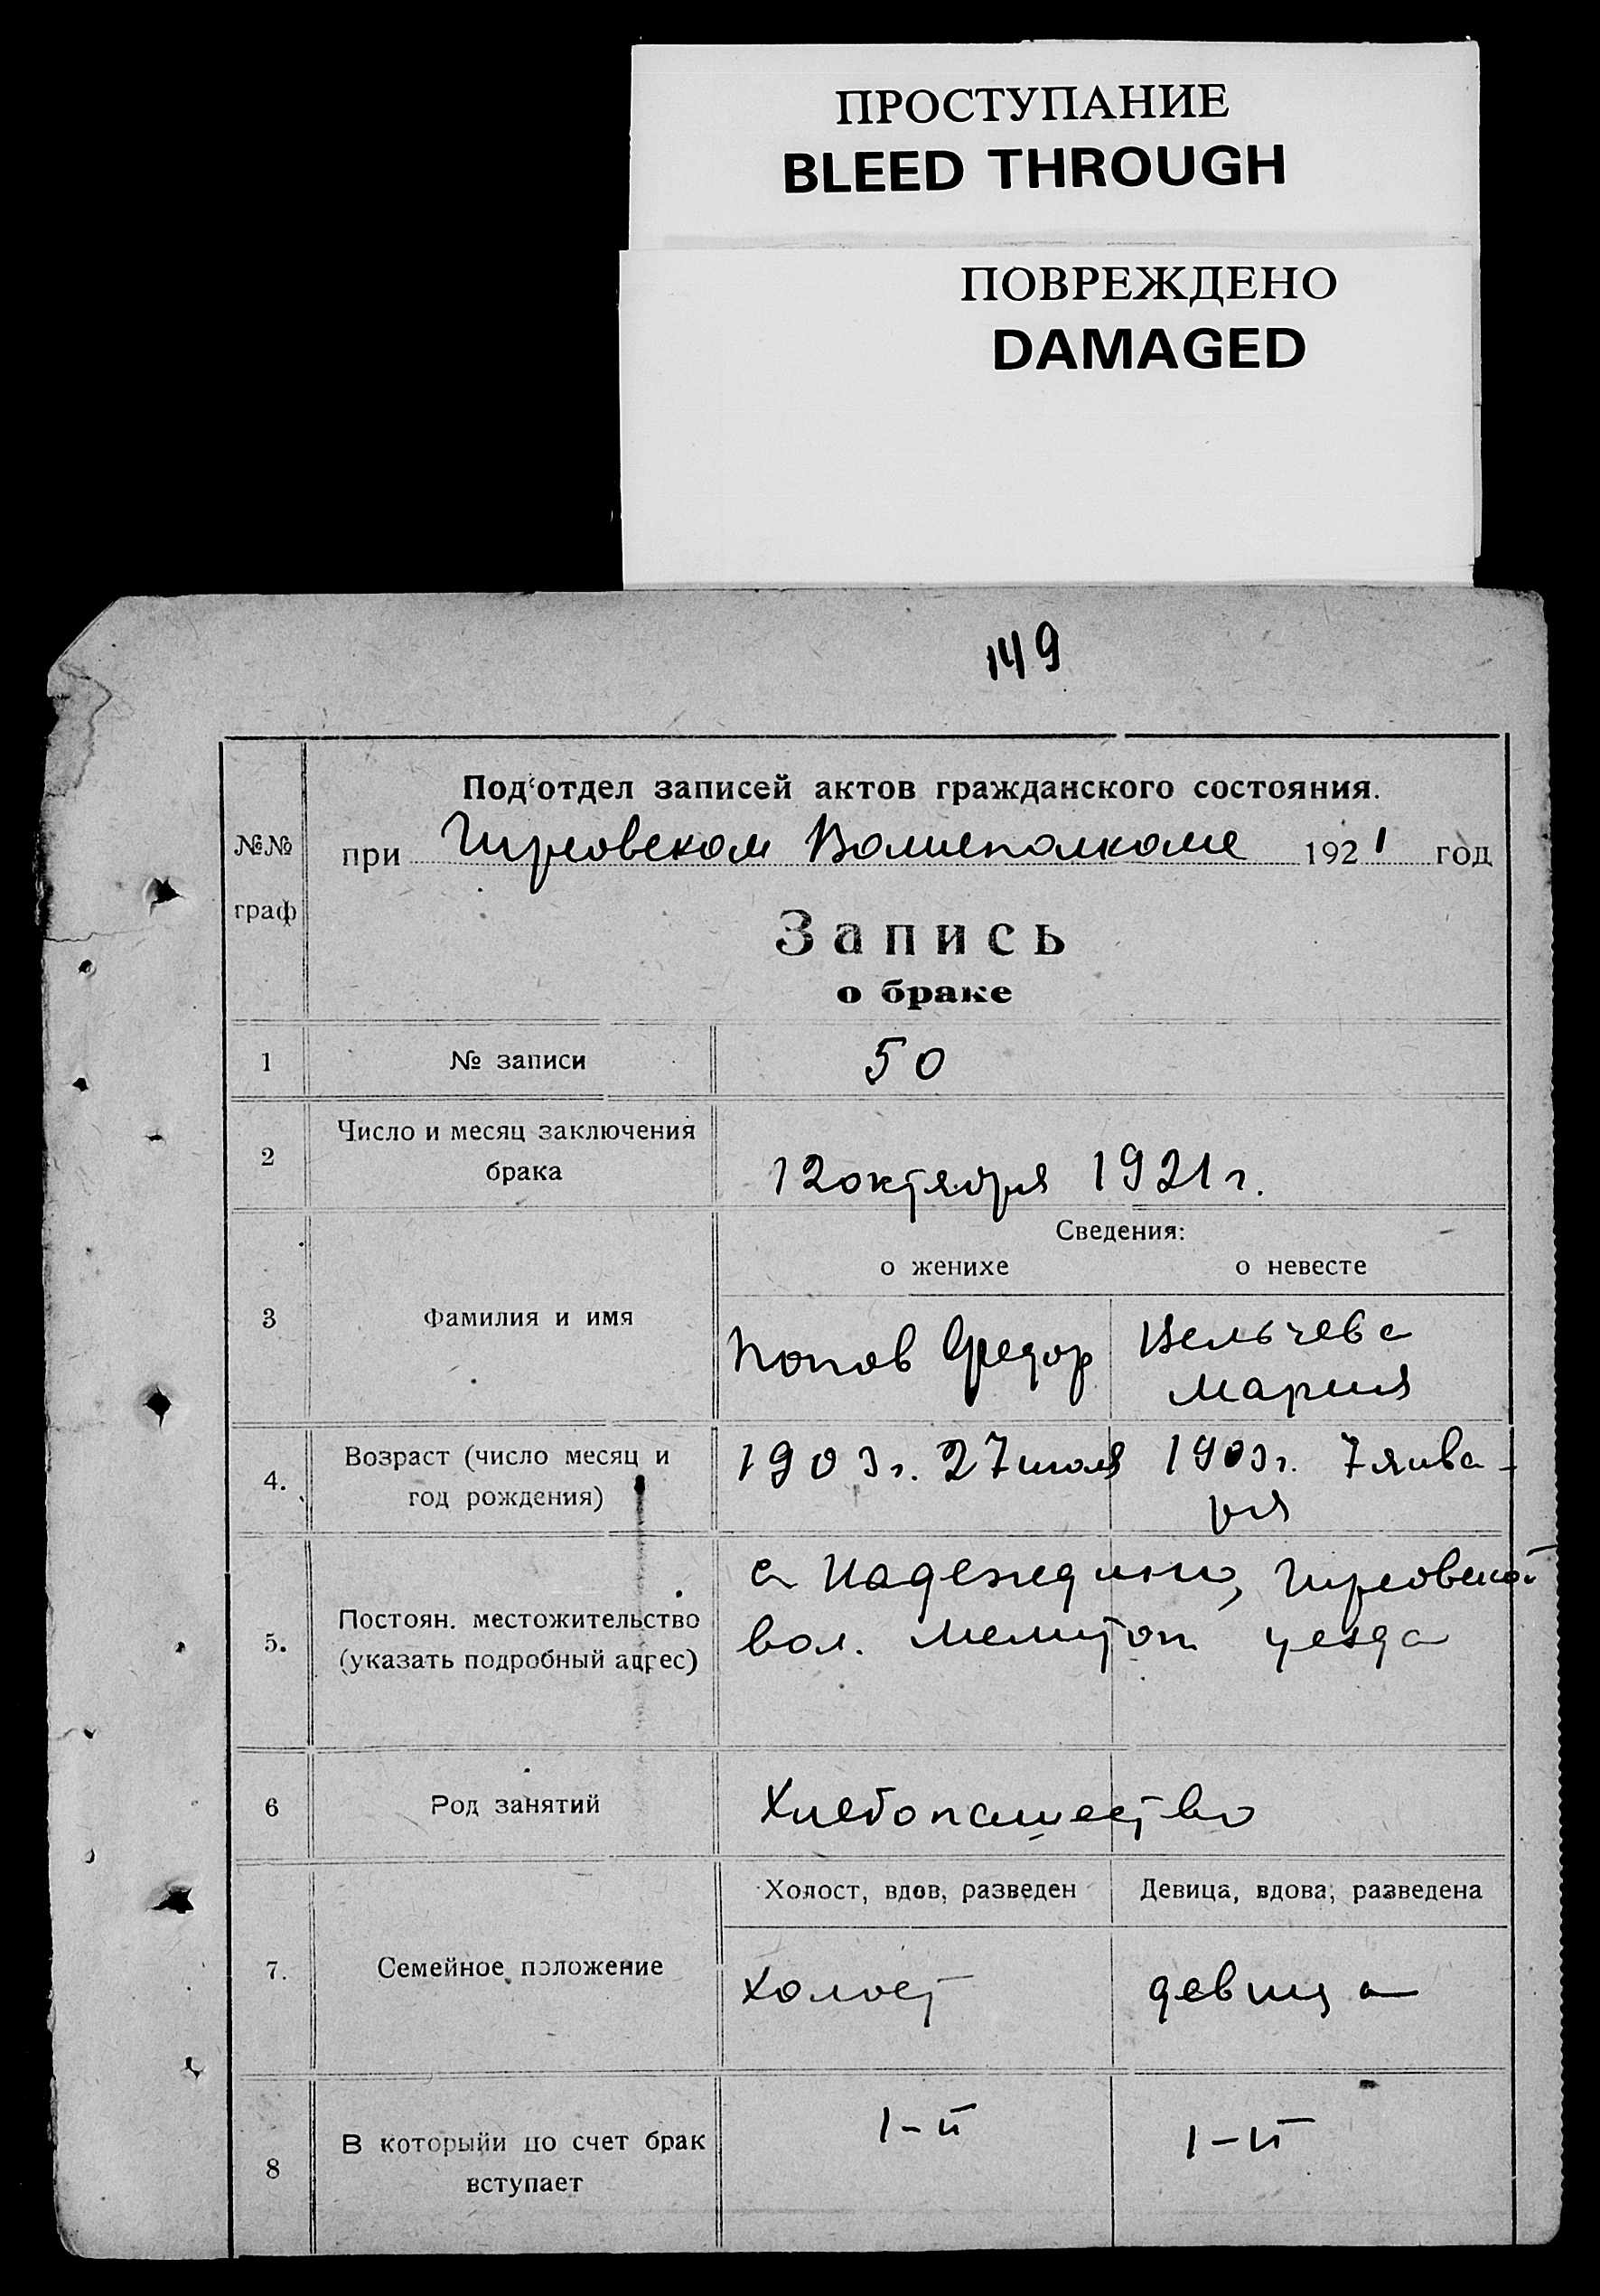 ПРОСТУПАНИЕ
BLEED THROUGH
ПОВРЕЖДЕНО
DAMAGED
149
Под‘отдел записей актов гражданского состояния.
№№
при Гирсовском Волисполкоме 1921 год
граф
Запись
о браке
1 № записи 50
2 Число и месяц заключения
брака
12 октября 1921 г.
Сведения:
о женихе о невесте
3 Фамилия и имя
Попов Федор
Вельчева
Мария
4. Возраст (число месяц и
год рождения)
1903 г. 27 июля
1903 г. 7 янва-
ря
5. Постоян. местожительство
(указать подробный адрес)
с Надеждино, Гирсовской
вол. Мелитоп уезда
6 Род занятий Хлебопашество
Холост, вдов, разведен Девица, вдова, разведена
7. Семейное положение холост девица
8 В который по счет брак
вступает
1-й 1-й